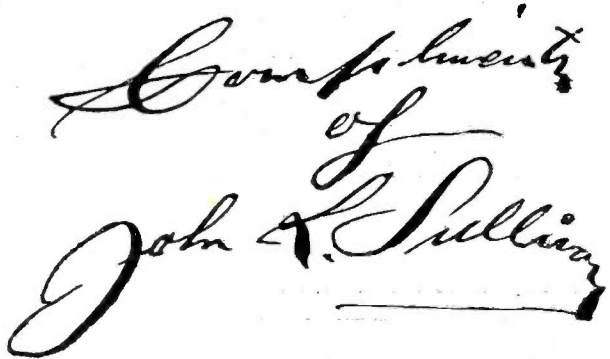 Compliments
of
John L. Sullivan